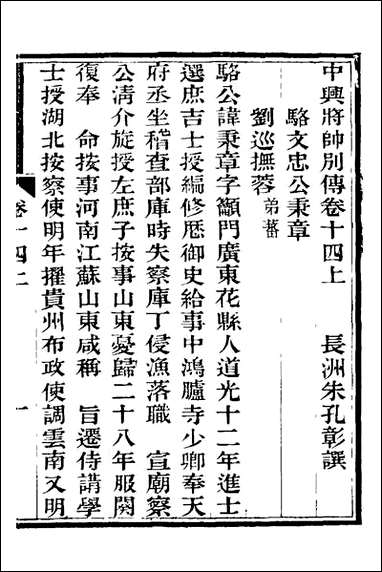 中興將帥別傳卷十四上　長洲朱孔彰譔
駱文忠公秉章
劉巡撫蓉 弟蕃
駱公諱秉章字籲門廣東花縣人道光十二年進士
選庶吉士授編修歷御史給事中鴻臚寺少卿奉天
府丞坐稽查部庫時失察庫丁侵漁落職　宣廟察
公清介旋授左庶子按事山東憂歸二十八年服闋
復奉　命按事河南江蘇山東咸稱　旨遷侍講學
士授湖北按察使明年擢貴州布政使調雲南又明
卷十四上
一